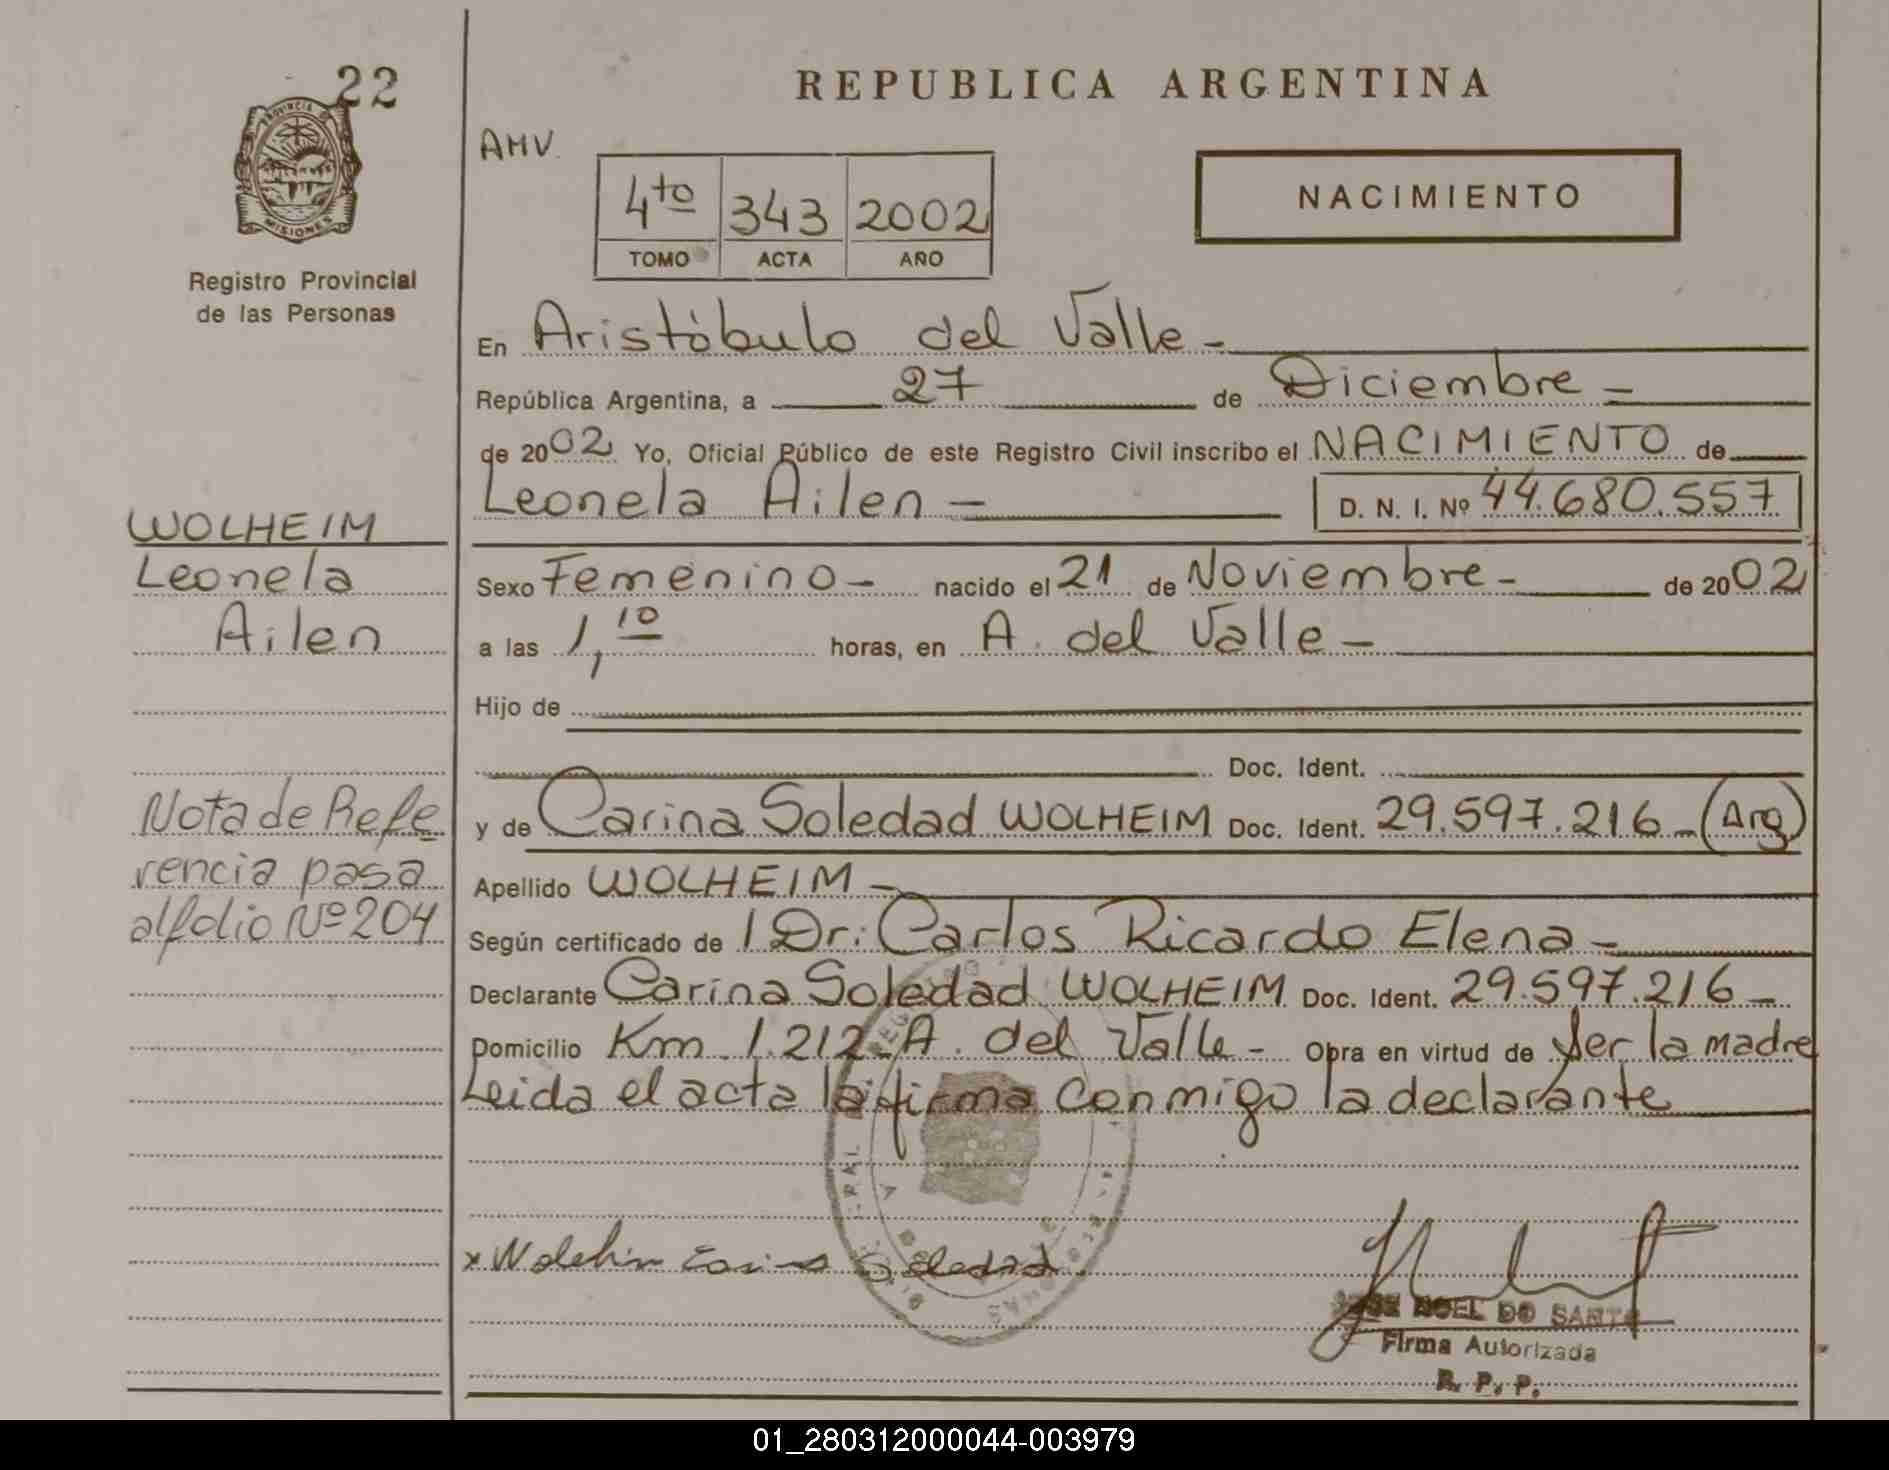 22
PROVINCIA DE
MISIONES
Registro Provincial
de las Personas
REPUBLICA ARGENTINA
AMV.
4to 343 2002
TOMO ACTA AÑO
NACIMIENTO
En Aristóbulo del Valle -
República Argentina, a 27 de Diciembre -
de 2002 Yo, Oficial Público de este Registro Civil inscribo el NACIMIENTO de
Leonela Ailen - D. N. I. Nº 44.680.557
WOLHEIM
Leonela
Ailen
Sexo Femenino - nacido el 21 de Noviembre - de 2002
a las 1,10 horas, en A. del Valle -
Hijo de
Doc. Ident.
y de Carina Soledad WOLHEIM Doc. Ident. 29.597.216 - (Arg)
Nota de Refe
rencia pasa
al folio Nº 204
Apellido WOLHEIM -
Según certificado de / Dr: Carlos Ricardo Elena -
Declarante Carina Soledad WOLHEIM Doc. Ident. 29.597.216 -
Domicilio Km 1.212 - A. del Valle - Obra en virtud de Ser la madre
Leida el acta la firma conmigo la declarante
x Wolehin Carina Soledad
JOSE NOEL DO SANTO
Firma Autorizada
R. P. P.
01_280312000044-003979